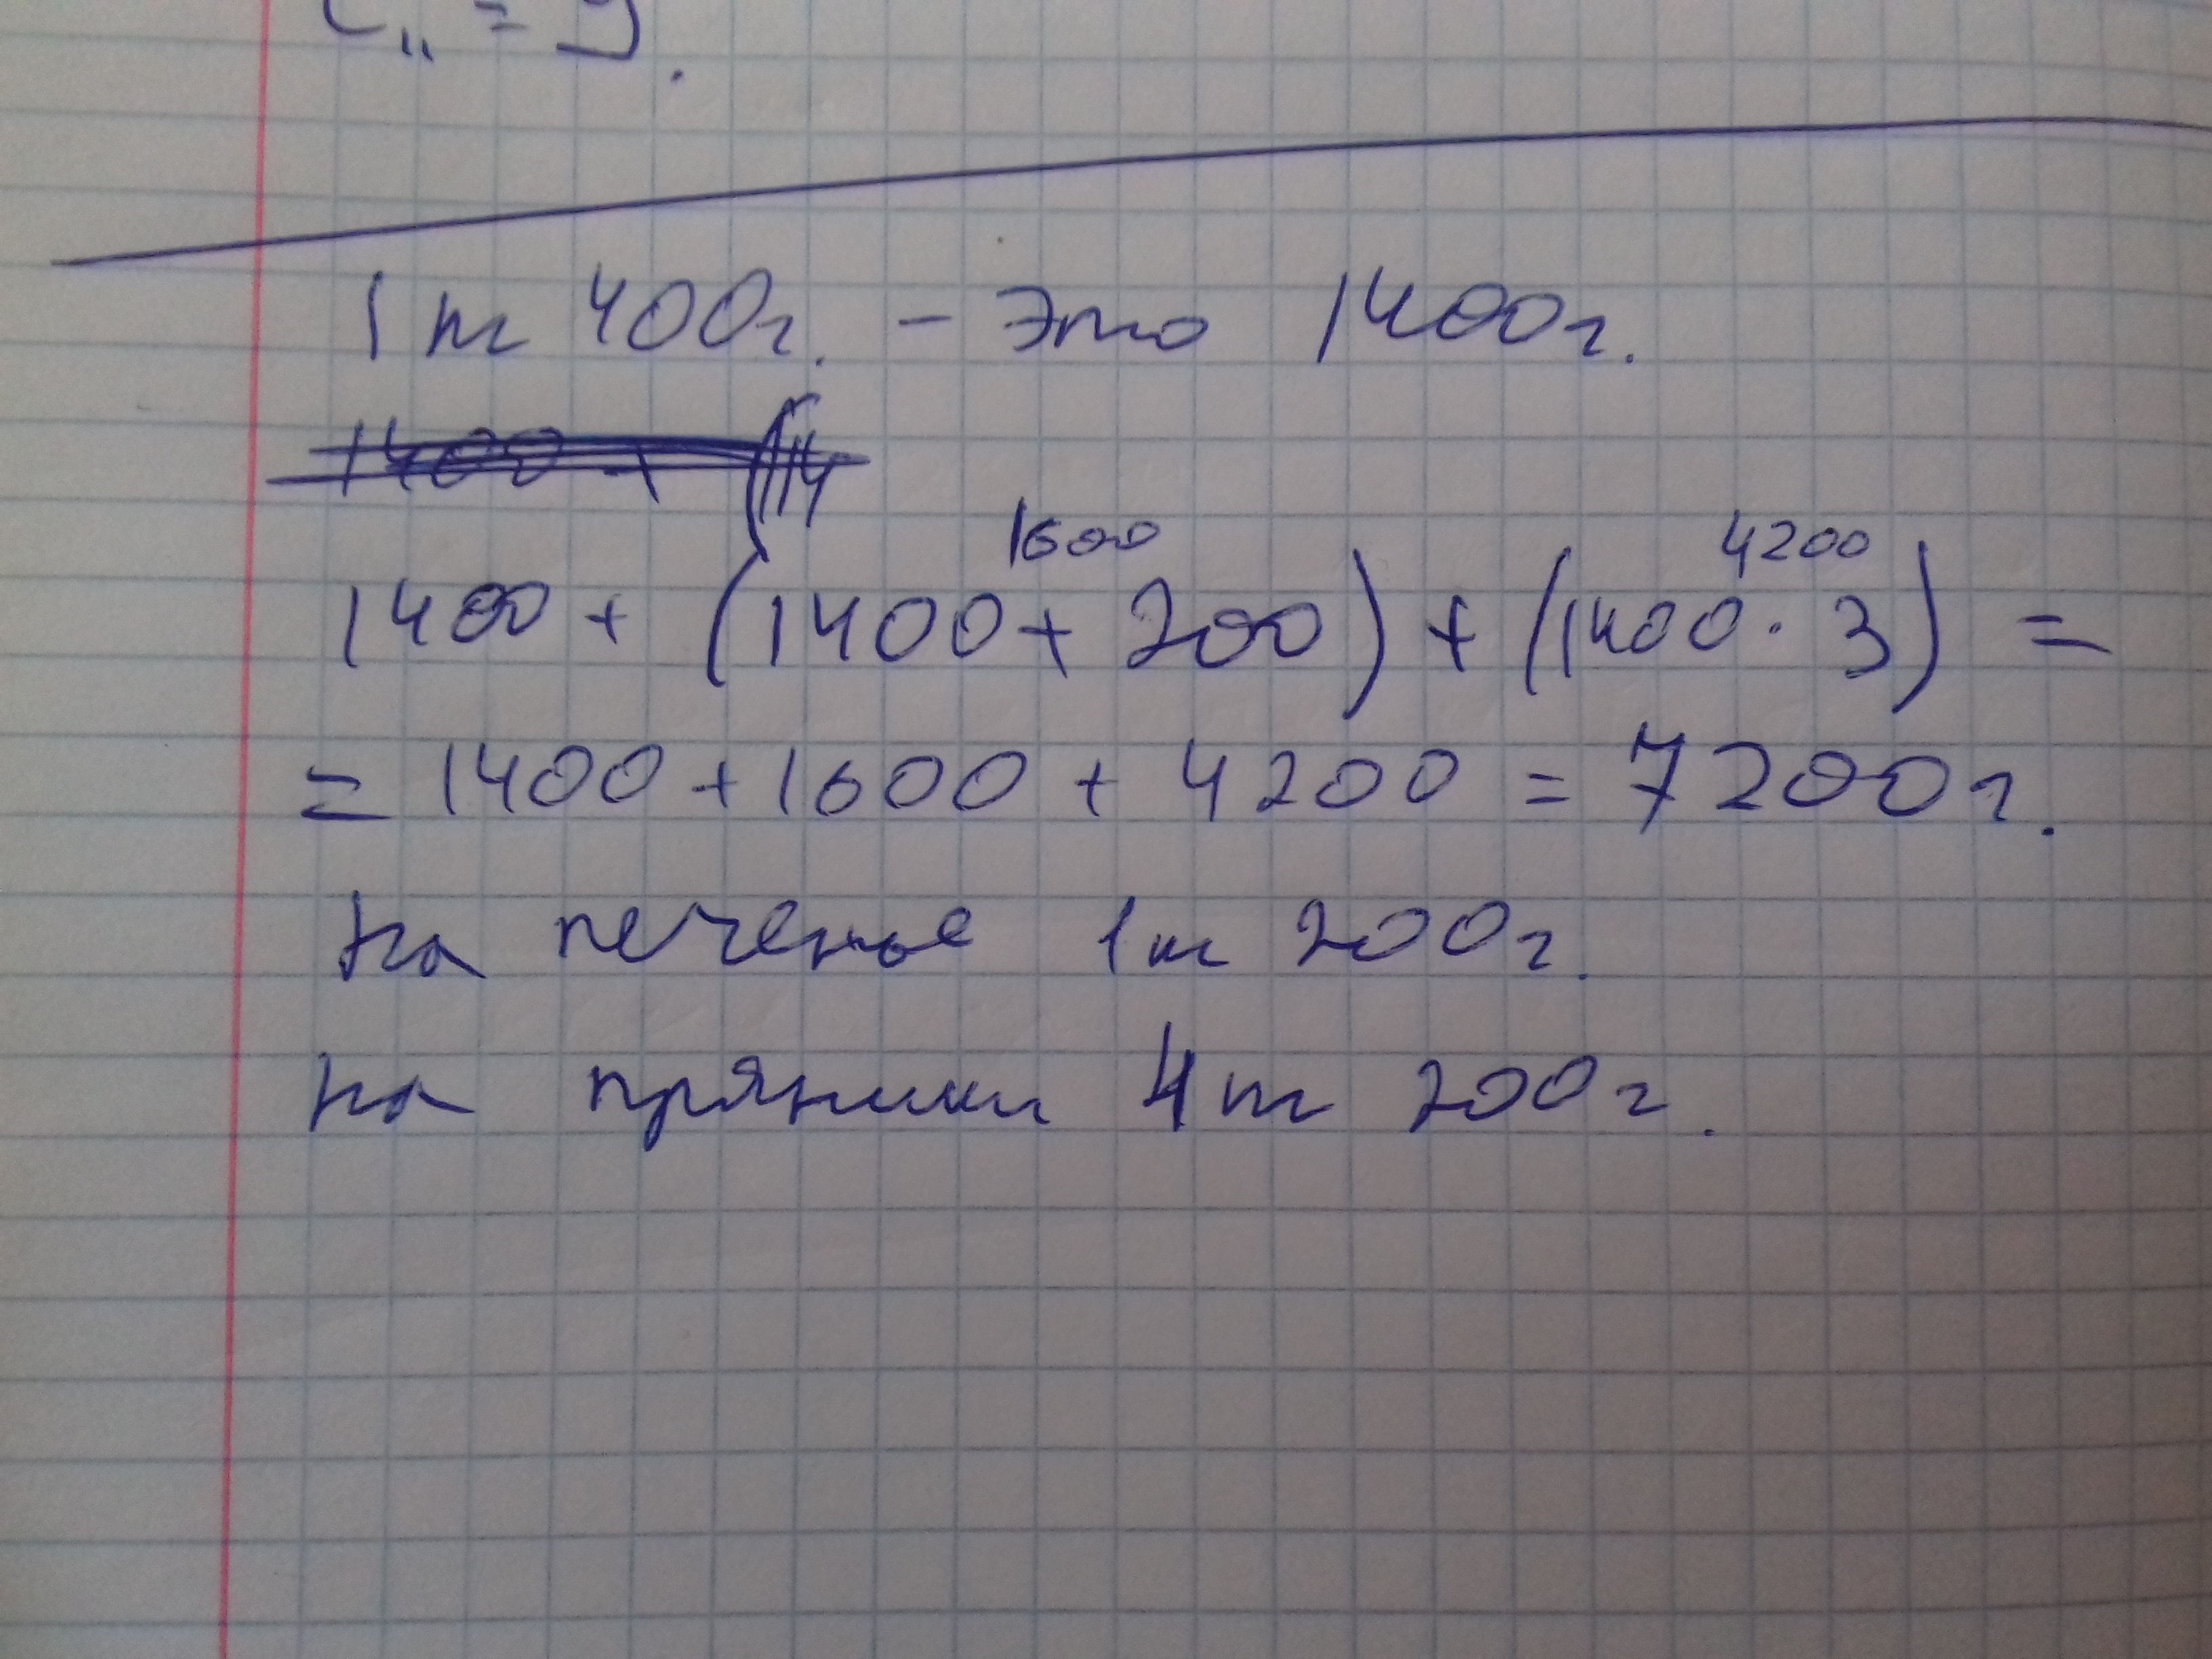 1 кг 400г. – это 1400г.
1400 + (1400 + 200) + (1400 · 3) =
1600 4200
= 1400 + 1600 + 4200 = 7200г.
на печенье 1кг 200г.
на пряники 4кг 200г.